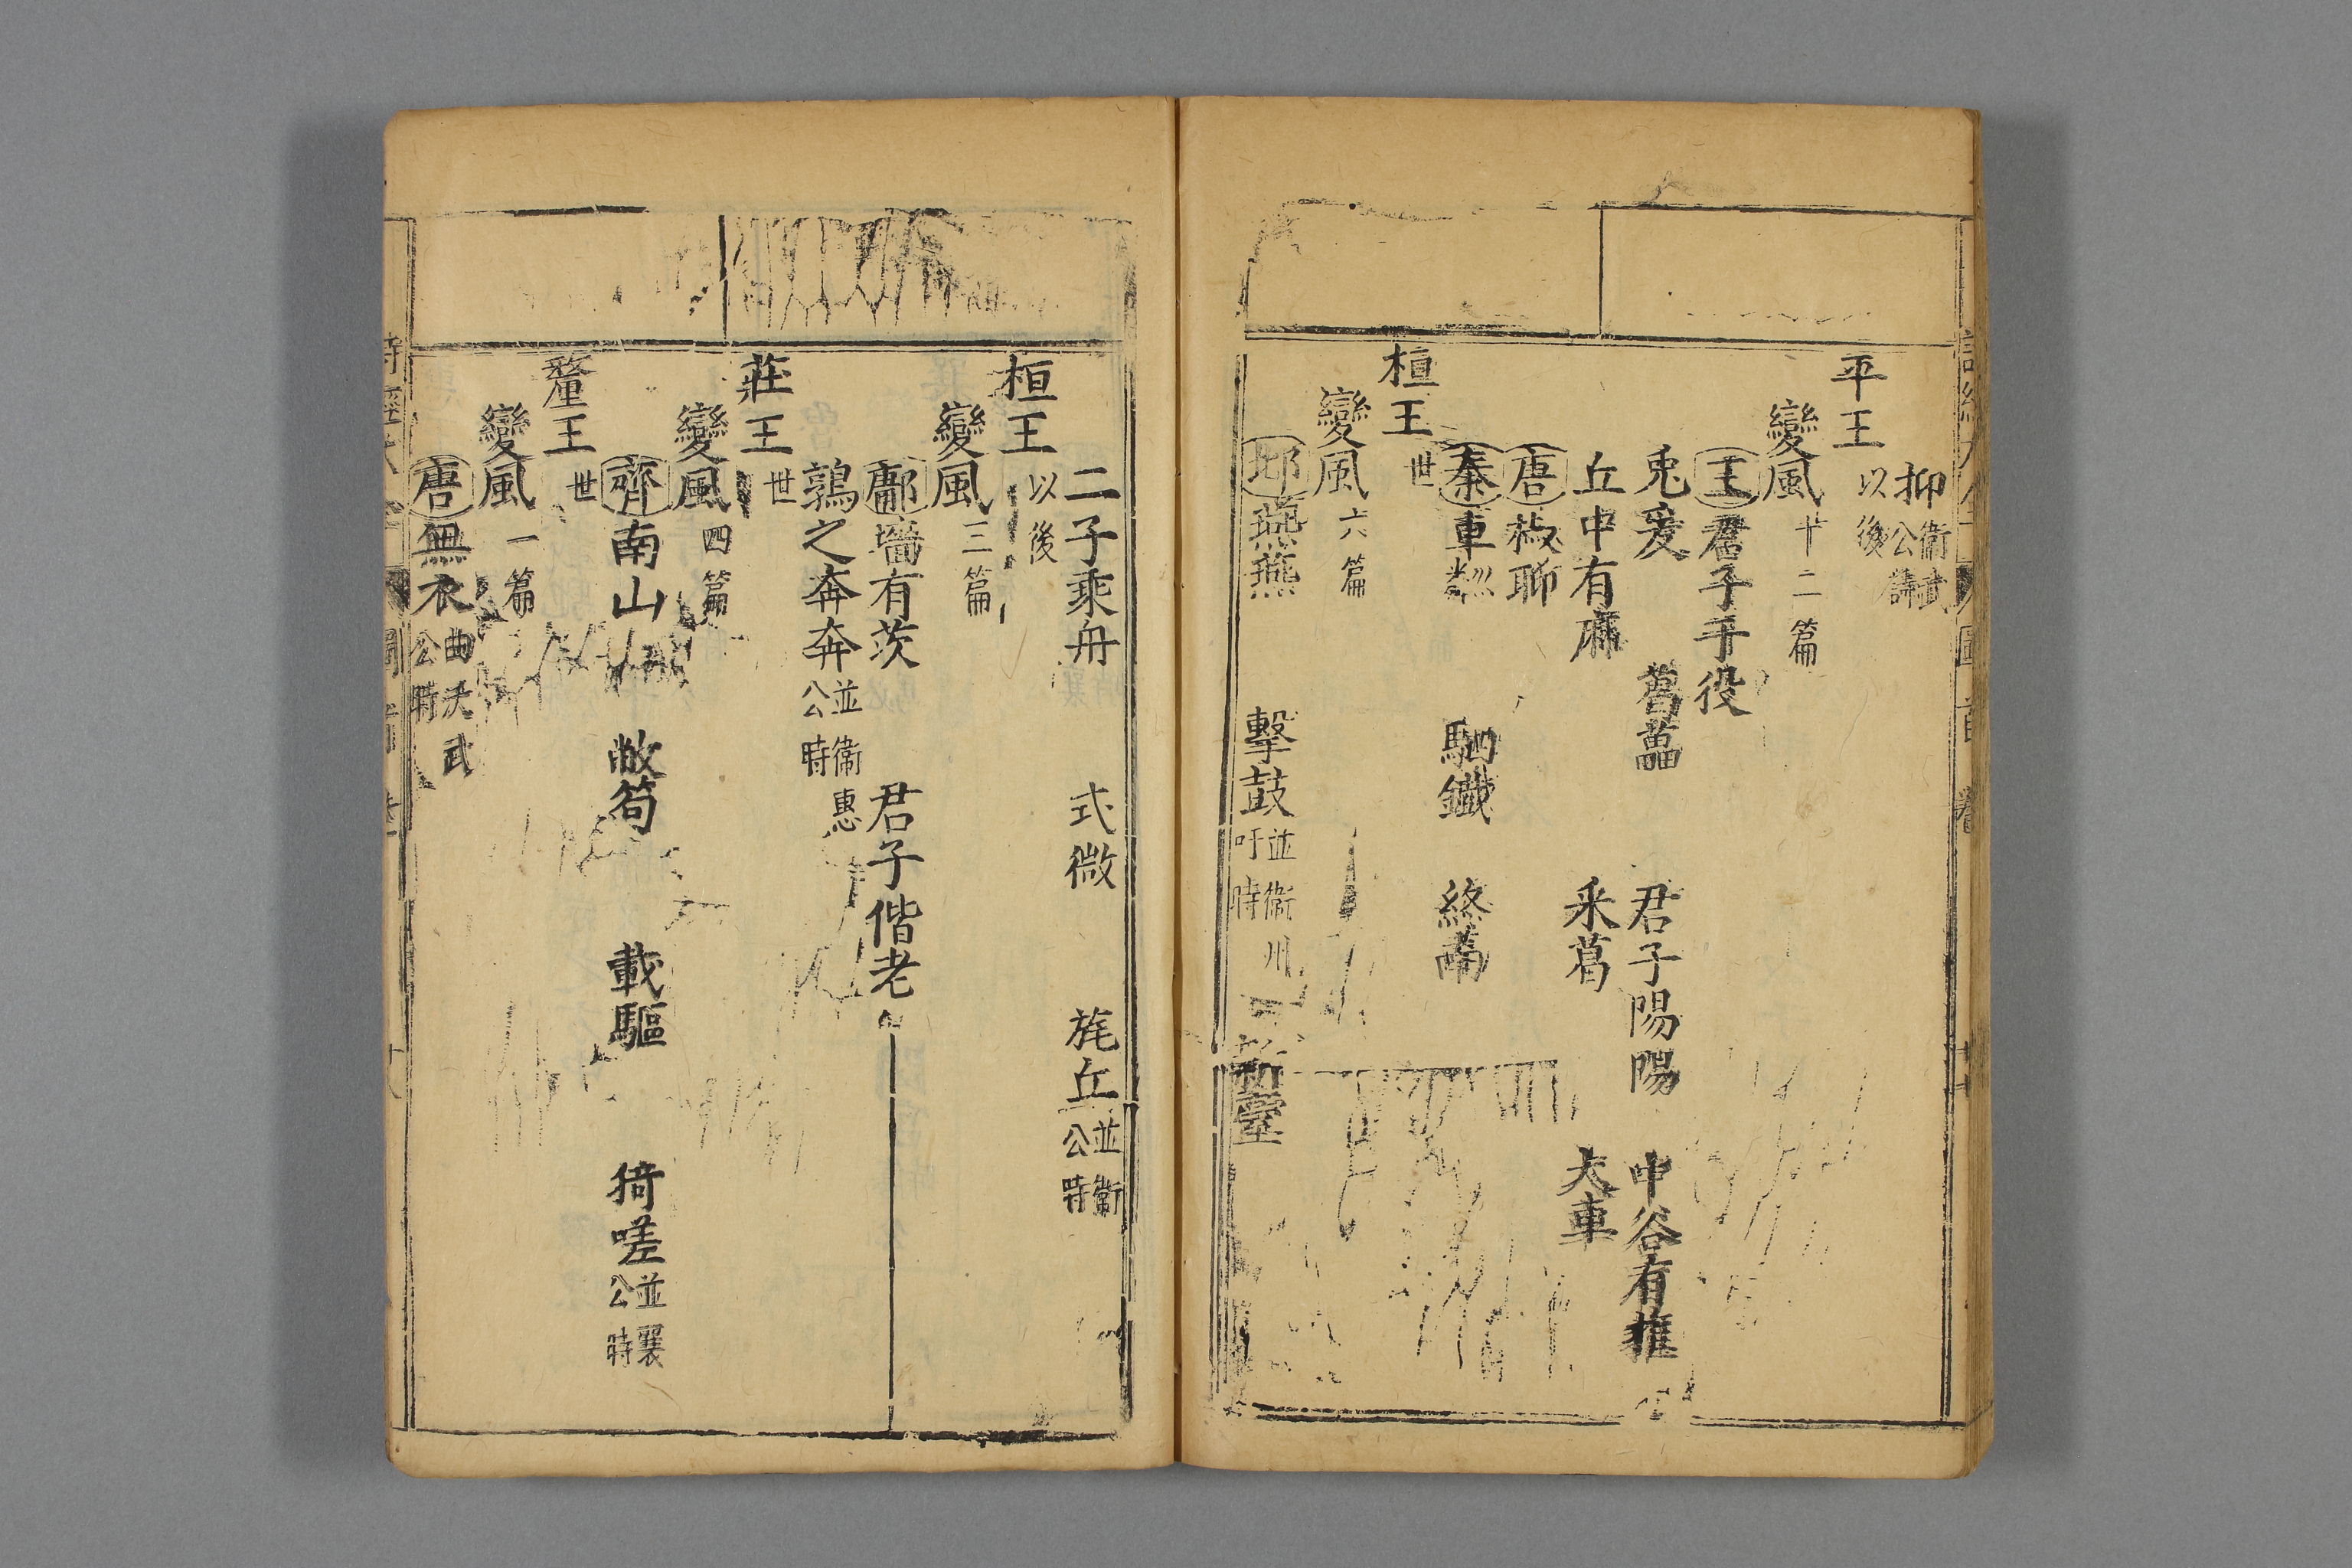 抑衛武公詩
平王以後
變風十二篇
王君子于役
兎爰　葛藟　君子陽陽　中谷有蓷
丘中有麻　采葛　大車
唐椒聊
秦車粼　駟鐵　終南
桓王世
變風六篇
邶燕燕　擊鼓並衛州吁時　新臺
二子乘舟　式微　旄丘並衛公時
桓王以後
變風三篇
鄘墻有茨　君子偕老
鶉之奔奔並衛惠公時
莊王世
變風四篇
齊南山　敝笱　載驅　猗嗟並襄公時
釐王世
變風一篇
唐無衣曲沃武公時